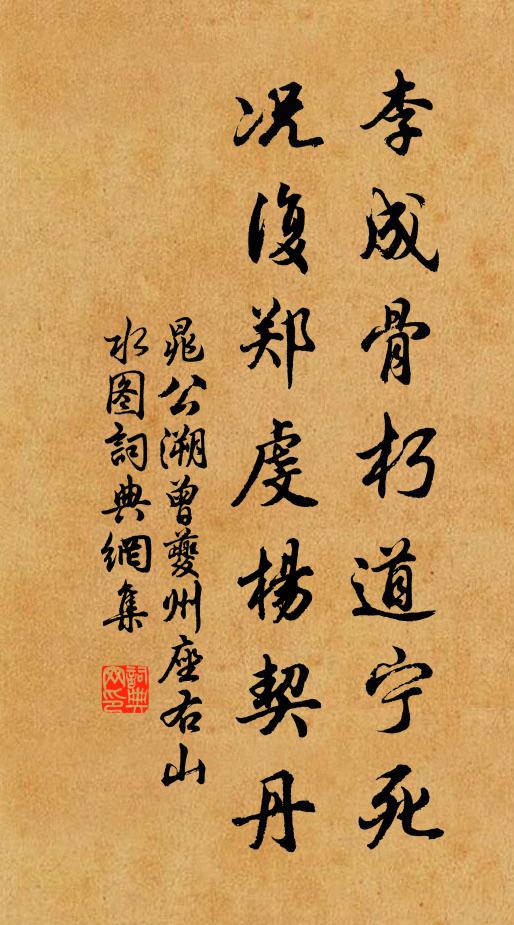 李成骨朽道宁死
况復郑虔楊契丹
晁公溯曾夔州座右山
水图詞典網集
詞典網印